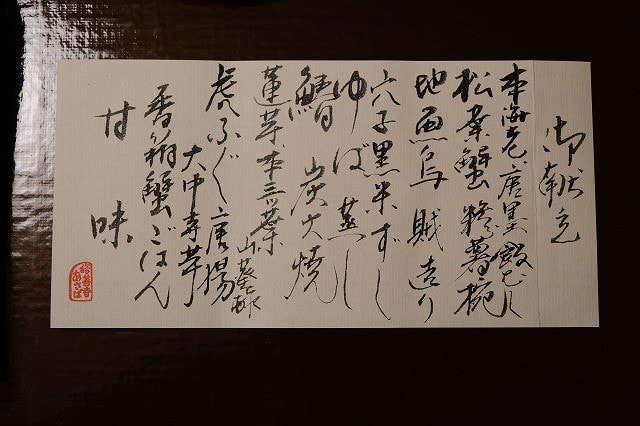 御献立
車海老唐墨 飯むし
松葉蟹糝薯椀
地魚烏賊造り
穴子黒米ずし
ゆば蒸し
鰆 炭火焼
蓮芋 三ツ葉
虎ふぐ唐揚
大中寺芋
香箱蟹ごはん
甘味